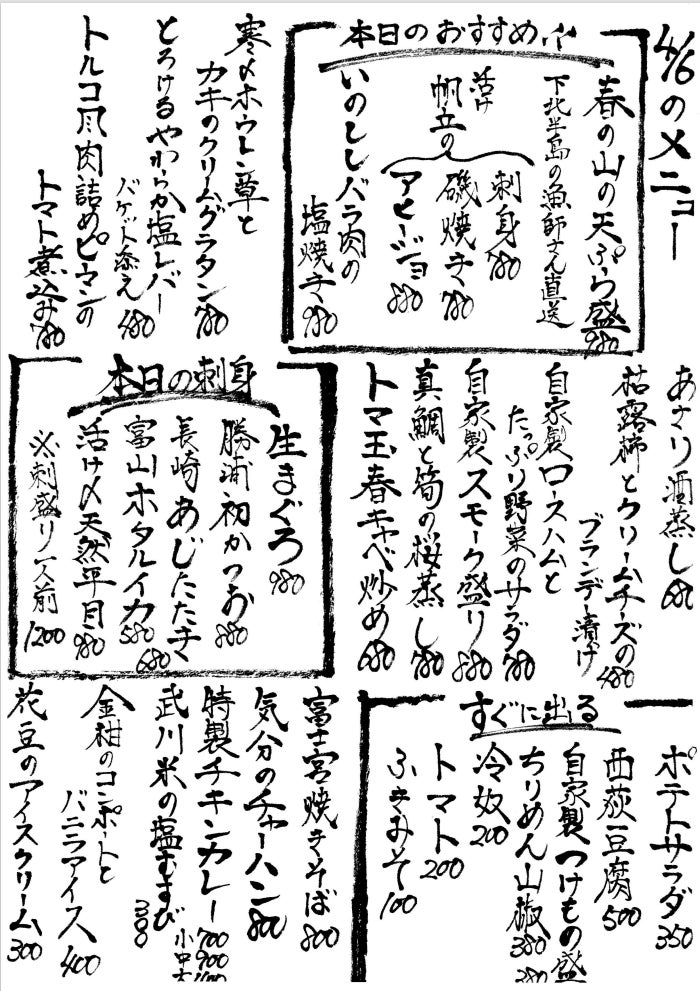 4/6のメニュー
本日のおすすめ
春の山の天ぷら盛 980
下北半島の漁師さん直送
活け
帆立の
刺身 780
磯焼き 780
アヒージョ 880
いのししバラ肉の
塩焼き 980
寒〆ホウレン草と
カキのクリームグラタン 780
とろけるやわらか塩レバー
バゲット添え 480
トルコ風肉詰めピーマンの
トマト煮込み 780
あさり酒蒸し 680
枯露柿とクリームチーズの
ブランデー漬け 480
自家製ロースハムと
たっぷり野菜のサラダ 780
自家製スモーク盛り 880
真鯛と筍の桜蒸し 780
トマ玉春キャベ炒め 680
本日の刺身
生まぐろ 980
勝浦初かつお 880
長崎あじたたき 680
富山ホタルイカ 580
活け〆天然平目 980
※刺盛り一人前 1200
すぐに出る
ポテトサラダ 350
西荻豆腐 500
自家製つけもの盛 380
ちりめん山椒 380
冷奴 200
トマト 200
ふきみそ 100
富士宮焼きそば 800
気分のチャーハン 800
特製チキンカレー 700 900 1100
小中大
武川米の塩むすび 300
金柑のコンポートと
バニラアイス 400
花豆のアイスクリーム 300